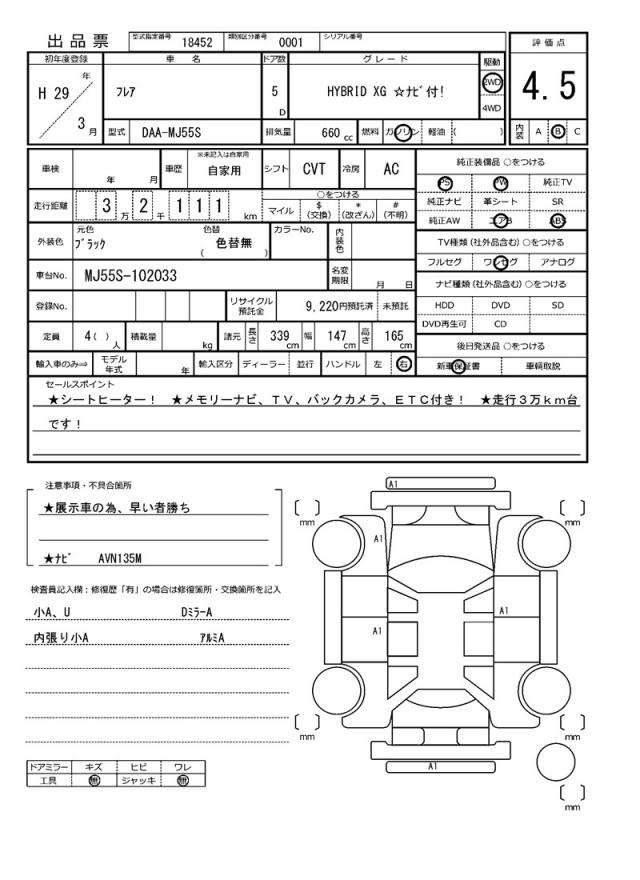 出品票 型式指定番号 18452 類別区分番号 0001 シリアル番号
評価点
4.5
内装 A B C
初年度登録 車名 ドア数 グレード 駆動
H 29 年 3 月 フレア 5 D HYBRID XG ☆ナビ付! 2WD 4WD
型式 DAA-MJ55S 排気量 660 cc 燃料 ガソリン 軽油 ( )
車検 年 月 車歴 ※未記入は自家用 自家用 シフト CVT 冷房 AC
走行距離 3 万 2 千 1 1 1 km
○をつける
マイル $(交換) *(改ざん) #(不明)
外装色 元色 ブラック 色替 色替無 ( ) カラーNo. 内装色
車台No. MJ55S-102033 名変期限 月 日
登録No. リサイクル預託金 9,220円預託済 未預託
定員 4( )人 積載量 kg 諸元 長さ 339 cm 幅 147 cm 高さ 165 cm
輸入車のみ⇒ モデル年式 年 輸入区分 ディーラー 並行 ハンドル 左 右
純正装備品 ○をつける
PS PW 純正TV
純正ナビ 革シート SR
純正AW エアB ABS
TV種類(社外品含む)○をつける
フルセグ ワンセグ アナログ
ナビ種類(社外品含む)○をつける
HDD DVD SD
DVD再生可 CD
後日発送品 ○をつける
新車保証書 車輌取説
セールスポイント
★シートヒーター! ★メモリーナビ、TV、バックカメラ、ETC付き! ★走行3万km台
です!
注意事項・不具合箇所
★展示車の為、早い者勝ち
★ナビ AVN135M
検査員記入欄:修復歴「有」の場合は修復箇所・交換箇所を記入
小A、U DミラーA
内張り小A アルミA
ドアミラー キズ ヒビ ワレ
工具 無 ジャッキ 無
A1
[ ] mm
[ ] mm
A1
A1
A1
[ ] mm
[ ] mm
A1
[ ] mm